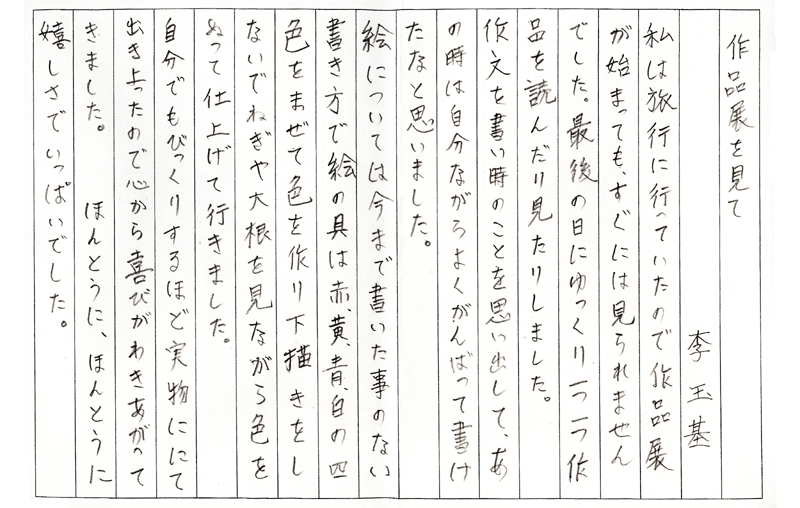 作品展を見て
李玉基
私は旅行に行っていたので作品展
が始まっても、すぐには見られません
でした。最後の日にゆっくり一つ一つ作
品を読んだり見たりしました。
作文を書い時のことを思い出して、あ
の時は自分ながらよくがんばって書け
たなと思いました。
絵については今まで書いた事のない
書き方で絵の具は赤、黄、青、白の四
色をまぜて色を作り下描きをし
ないでねぎや大根を見ながら色を
ぬって仕上げて行きました。
自分でもびっくりするほど実物ににて
出き上ったので心から喜びがわきあがって
きました。 ほんとうに、ほんとうに
嬉しさでいっぱいでした。